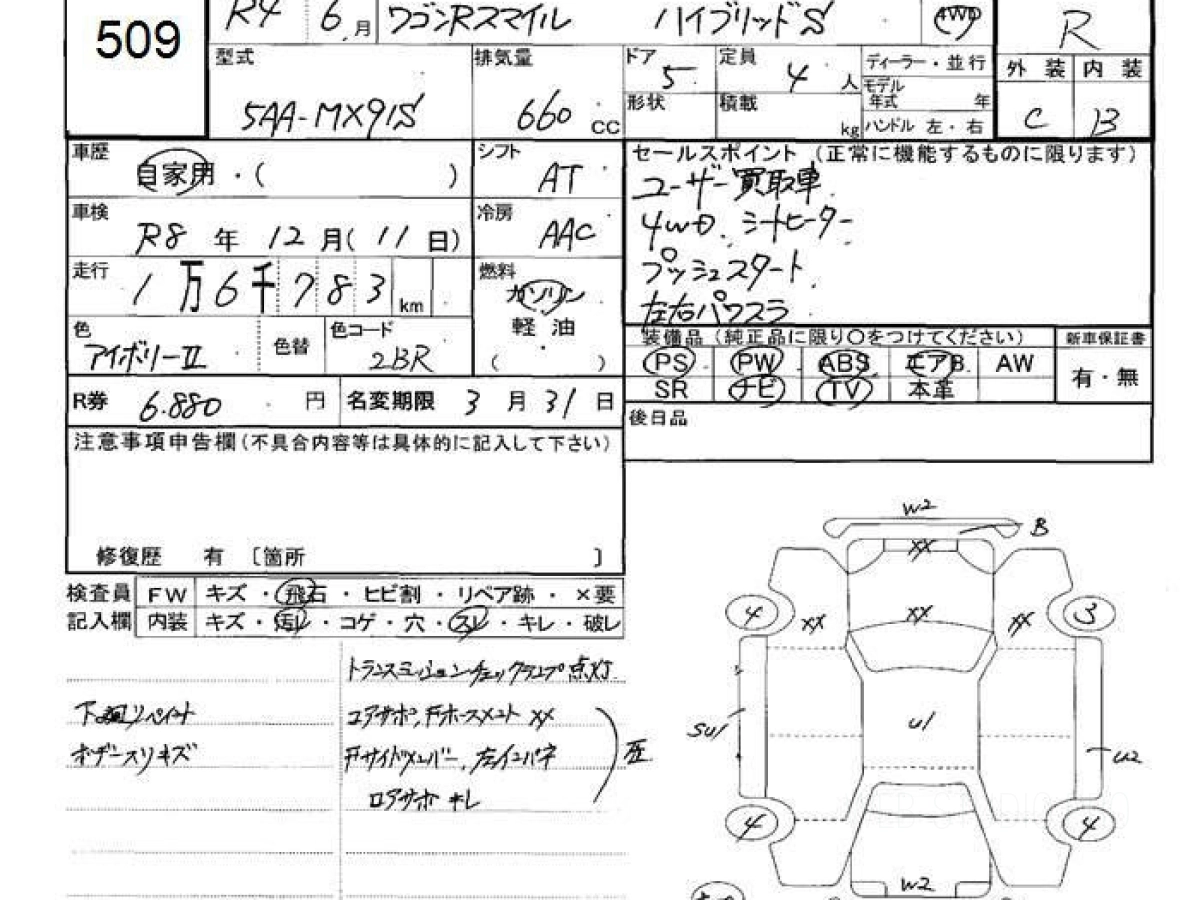 509
R4 6月 ワゴンRスマイル ハイブリッドS 4WD R
型式 5AA-MX91S
排気量 660 cc
ドア 5
定員 4 人
形状
積載 kg
ディーラー・並行
モデル年式 年
ハンドル 左・右
外装 内装
C B
車歴 自家用・( )
シフト AT
車検 R8 年 12 月( 11 日)
冷房 AAC
走行 1万6千783 km
燃料 ガソリン
軽油
( ・ )
色 アイボリーII
色替
色コード 2BR
R券 6.880 円
名変期限 3 月 31 日
セールスポイント (正常に機能するものに限ります)
ユーザー買取車
4WD、シートヒーター
プッシュスタート
左右パワスラ
装備品 (純正品に限り〇をつけてください)
新車保証書
PS PW ABS エアB AW
SR ナビ TV 本革
有・無
後日品
注意事項申告欄(不具合内容等は具体的に記入して下さい)
修復歴 有 〔箇所 ]
検査員記入欄
FW キズ・飛石・ヒビ割・リペア跡・×要
内装 キズ・汚レ・コゲ・穴・スレ・キレ・破レ
トランスミッションチェックランプ点灯
下廻リペイント
ボデースリキズ
コアサポ,Fホースメント XX
Fサイドメンバー,左インパネ
ロアサポ キレ
W2
B
XX
XX
XX
XX
4
3
SU1
U1
U2
4
4
W2